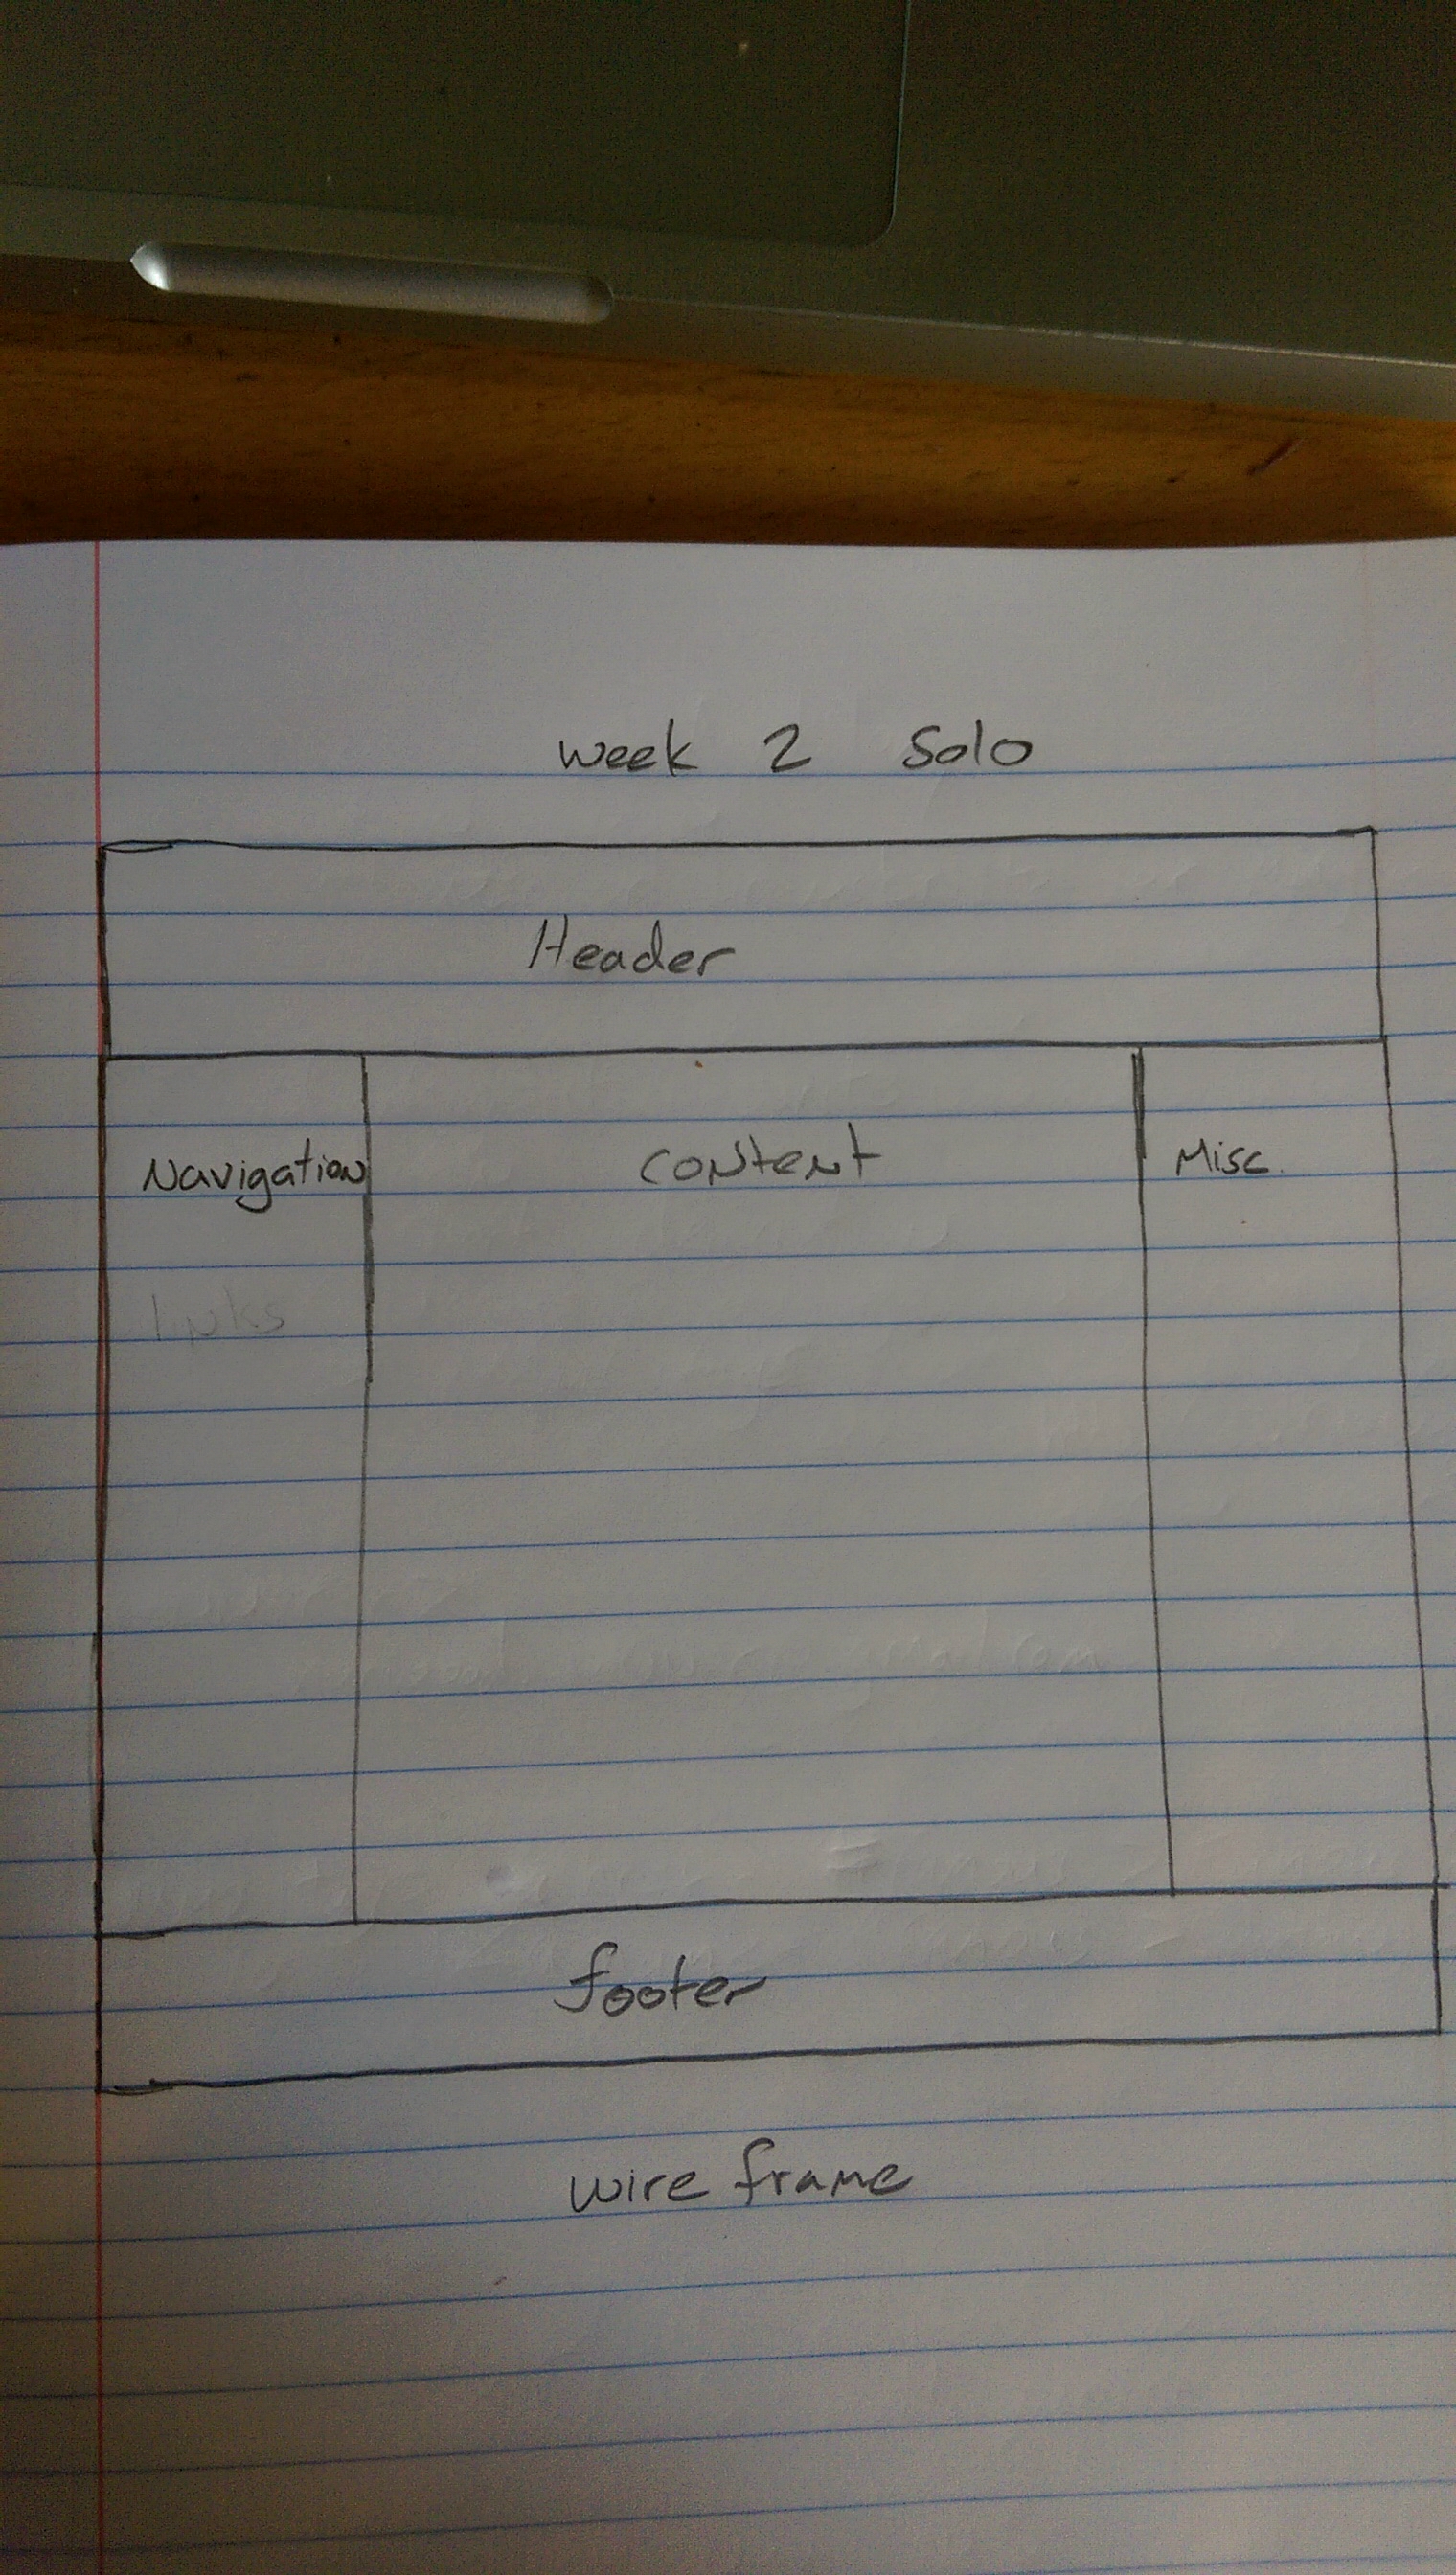 week 2 Solo
Header
Navigation content Misc.
links
footer
wire frame